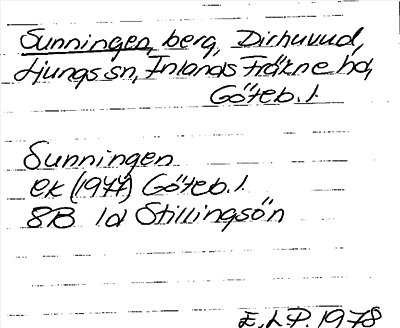 Sunningen, berg, Dirhuvud,
Ljungs sn, Inlands Fräkne hd,
Göteb. l.
Sunningen
ek (1977) Göteb. l.
8B 1d Stillingsön
E.L.P. 1978